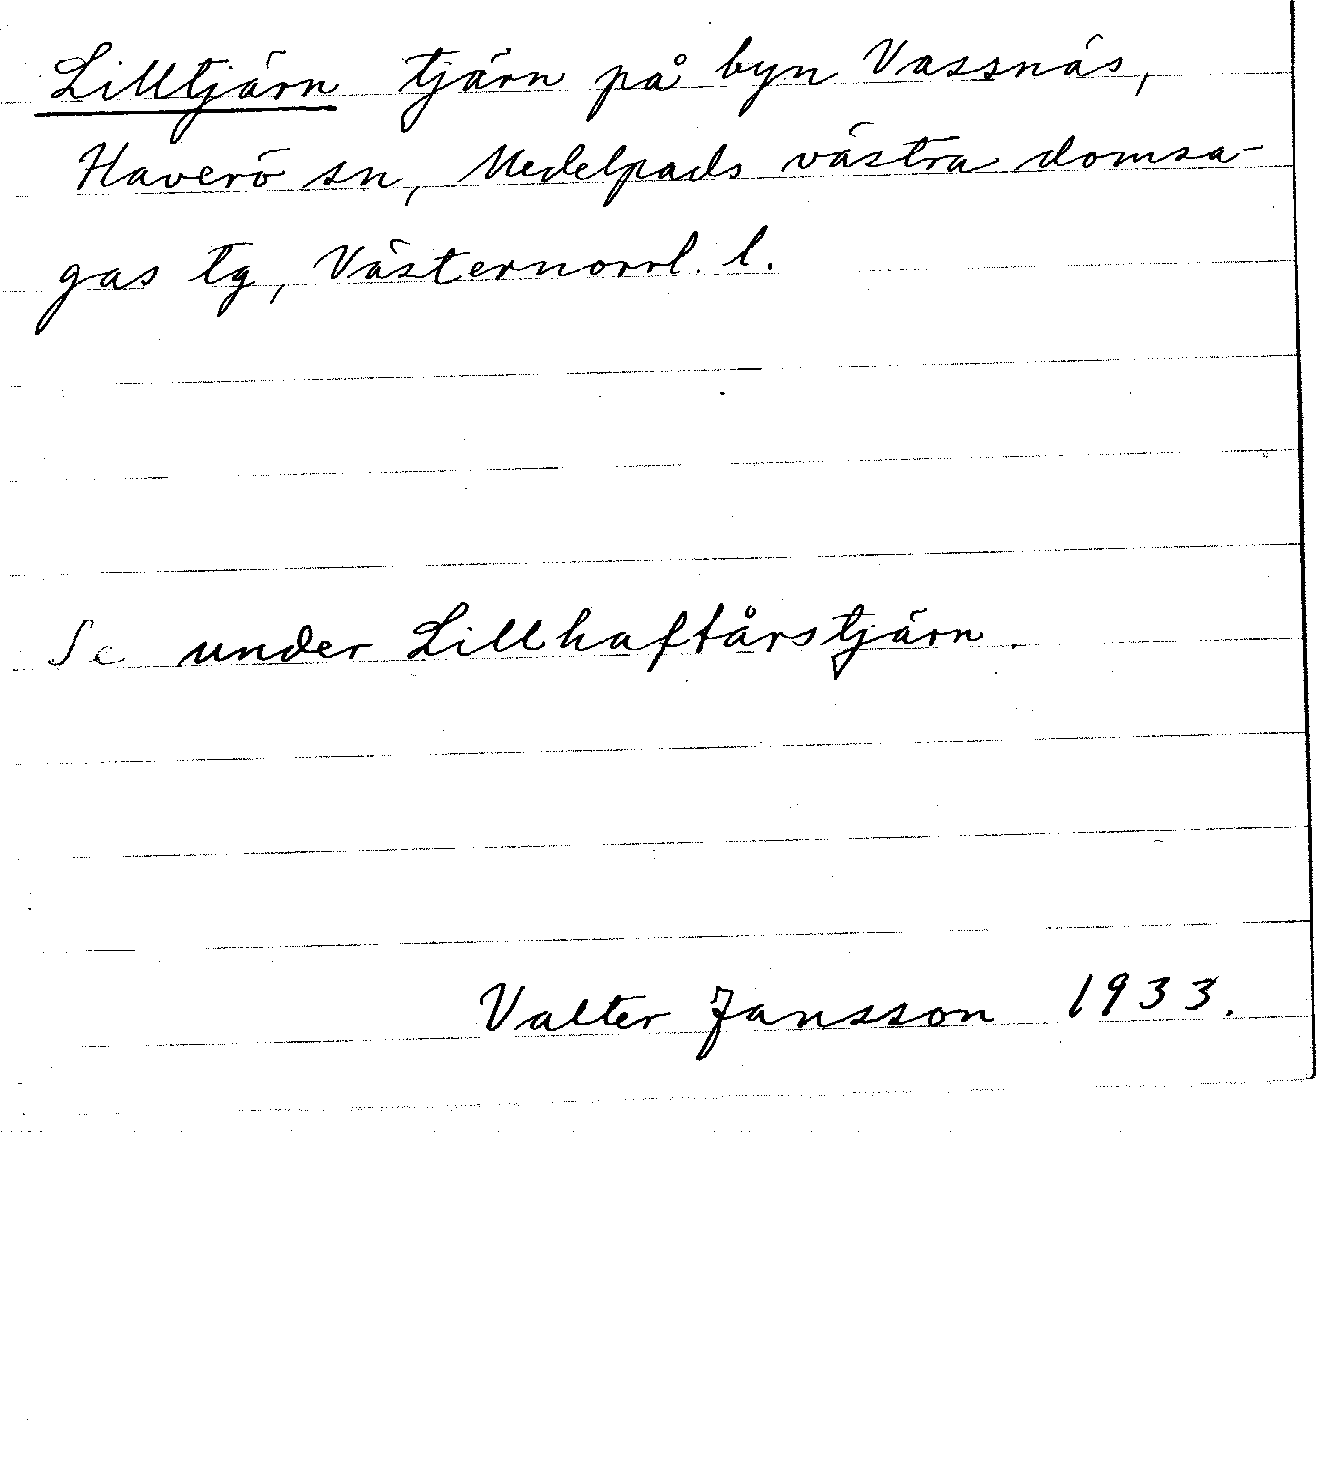 Lilltjärn tjärn på byn Vassnäs,
Haverö sn, Medelpads västra domsa-
gas tg, Västernorrl. l.
Se under Lillhaftårstjärn.
Valter Jansson 1933.